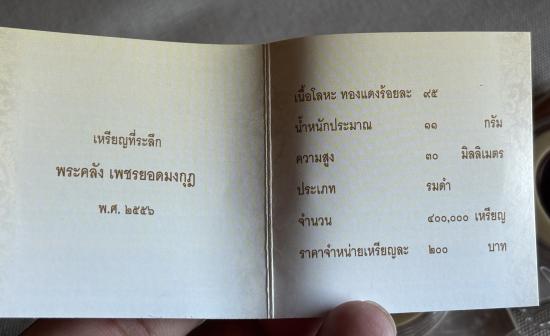 เหรียญที่ระลึก
พระคลัง เพชรยอดมงกุฎ
พ.ศ. ๒๕๕๖
เนื้อโลหะ ทองแดงร้อยละ ๙๕
น้ำหนักประมาณ ๑๑ กรัม
ความสูง ๓๐ มิลลิเมตร
ประเภท รมดำ
จำนวน ๔๐๐,๐๐๐ เหรียญ
ราคาจำหน่ายเหรียญละ ๒๐๐ บาท